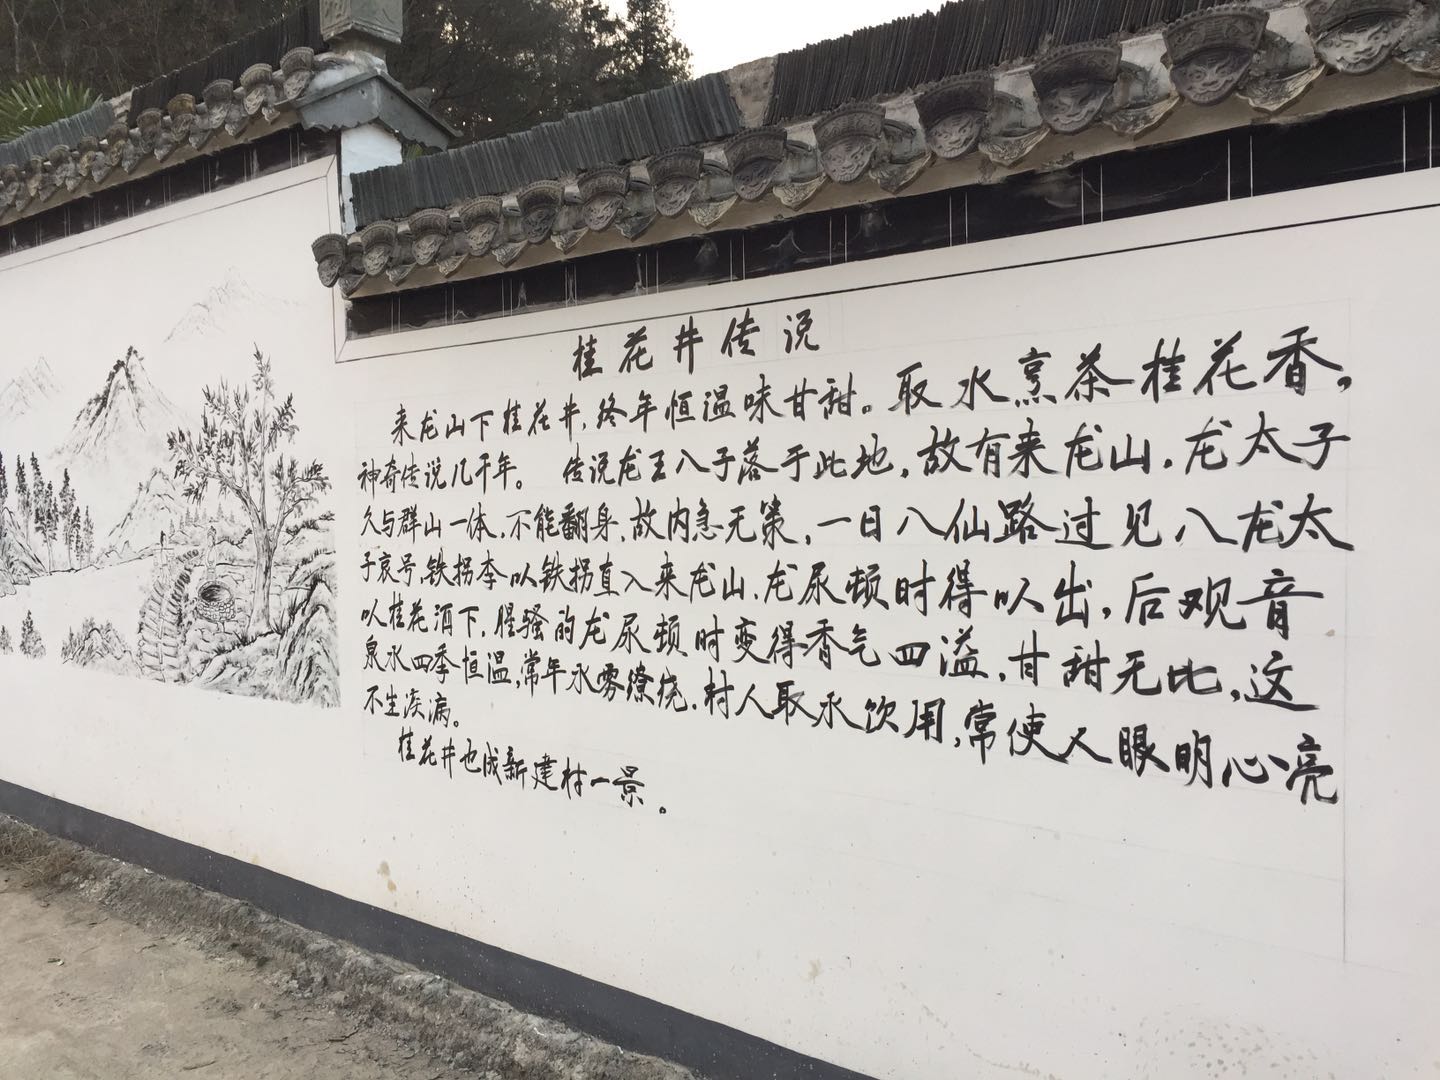 桂花井传说
来龙山下桂花井，终年恒温味甘甜。取水烹茶桂花香，
神奇传说几千年。 传说龙王八子落于此地，故有来龙山，龙太子
久与群山一体，不能翻身，故内急无策，一日八仙路过见八龙太
子哀号，铁拐李以铁拐直入来龙山，龙尿顿时得以出，后观音
以桂花酒下，腥骚的龙尿顿时变得香气四溢，甘甜无比，这
泉水四季恒温，常年水雾缭绕，村人取水饮用，常使人眼明心亮
不生疾病。
桂花井也成新建村一景。